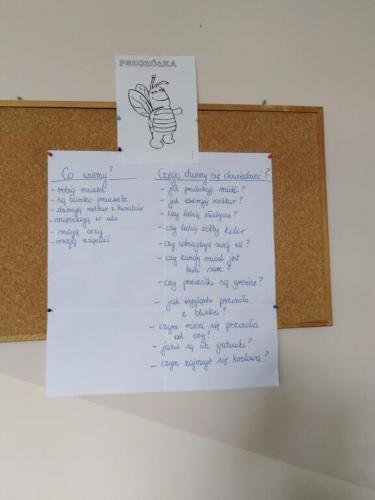 PSZCZÓŁKA
Co wiemy?
- robią miód
- są bardzo pracowite
- zbierają nektar z kwiatów
- mieszkają w ulu
- mają oczy
- mogą użądlić
Czego chcemy się dowiedzieć?
- jak produkują miód?
- jak zbierają nektar?
- czy lubią słodycze?
- czy lubią żółty kolor
- czy odnajdują swój ul?
- czy każdy miód jest
taki sam?
- czy pszczółki są groźne?
- jak wygląda pszczoła
z bliska?
- czym różni się pszczoła
od osy?
- jakie są ich gatunki?
- czym zajmuje się królowa?